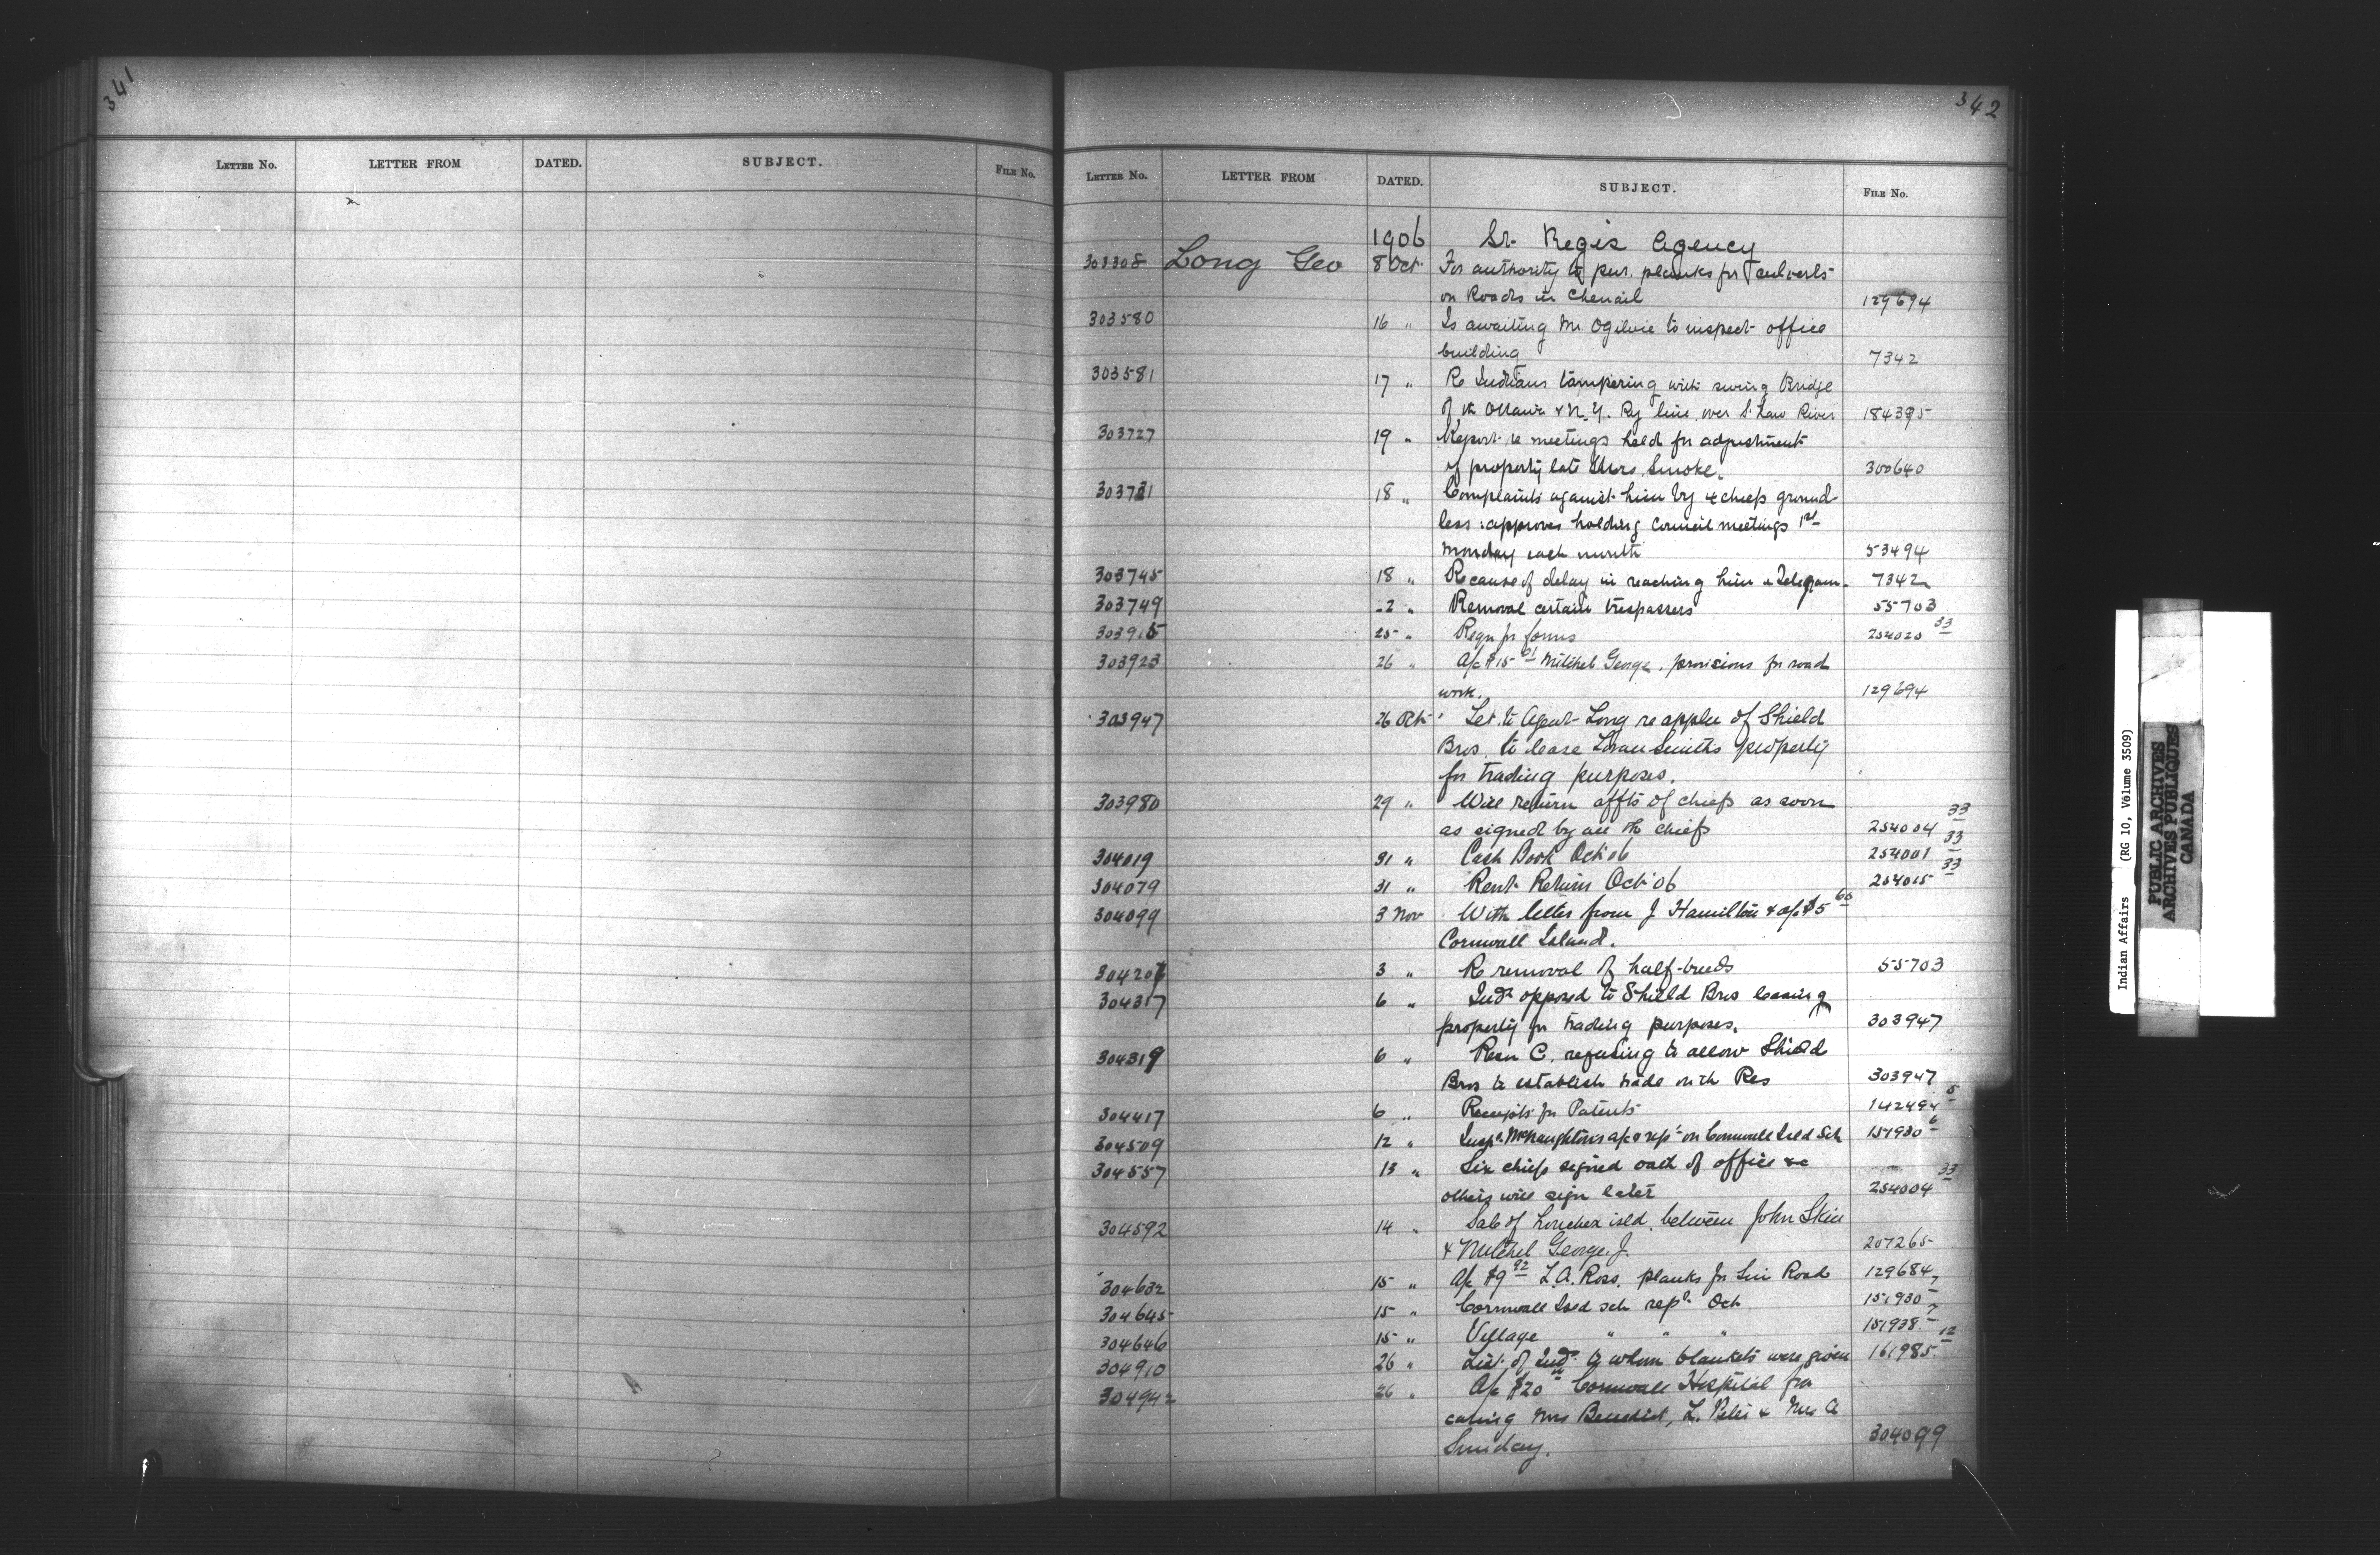 341
LETTER No. LETTER FROM DATED. SUBJECT. FILE No.
342
LETTER No. LETTER FROM DATED. SUBJECT. FILE No.
1906 St. Regis Agency
303308 Long Geo 8 Oct. For authority to pur. planks for culverts
on Roads in Chenail 129694
303580 16 " Is awaiting Mr. Ogilvie to inspect office
building 7342
303581 17 " Re Indians tampering with swing Bridge
of th Ottawa & N.Y. Ry line over St Law River 184395
303727 19 " Report re meetings held for adjustment
of property late Smoke. 300640
303731 18 " Complaints against him by 4 chiefs ground-
less : approves holding Council meetings 1st
Monday each month 53494
303745 18 " Re cause of delay in reaching him a Telegram. 7342
303749 22 " Removal certain trespassers 55703
303915 25 " Reqn for forms 254020 33
303923 26 " A/c $15 01 Mitchel George, provisions for road
work. 129694
303947 26 Oct. Let. to Agent Long re appln of Shield
Bros. to lease Smiths property
for trading purposes.
303980 29 " Will return affts of chiefs as soon
as signed by all th chiefs 254004 33
304019 31 " Cash Book Oct '06 254001 33
304079 31 " Rent Return Oct '06 254015 33
304099 3 Nov With letter from J Hamilton & a/c $5 60
Cornwall Island.
304207 3 " Re removal of half-breeds 55703
304317 6 " Inds opposed to Shield Bros leasing
property for trading purposes. 303947
304319 6 " Resn C. refusing to allow Shield
Bros to establish trade on th Res 303947
304417 6 " Receipts for Patents 142494 5
304509 12 " Inspr. McNaughton's a/c & rept on Cornwall Isld Sch 151930 6
304557 13 " Six chiefs signed oath of office &c
others will sign later 254004 33
304592 14 " Sale of isld. between John Skin
& Mitchel George J. 207265
304632 15 " A/c $9 92 L.A. Ross. planks for Road 129684
304645 15 " Cornwall Isld sch rept. Oct 151930 7
304646 15 " Village " " " 151938 7
304910 26 " List of Inds. to whom blankets were given 161985 12
304942 26 " A/c $20 Cornwall Hospital for
caring Mrs Benedict, L. Peter & Mrs A
Sunday. 304099
Indian Affairs (RG 10, Volume 3509)
PUBLIC ARCHIVES
ARCHIVES PUBLIQUES
CANADA